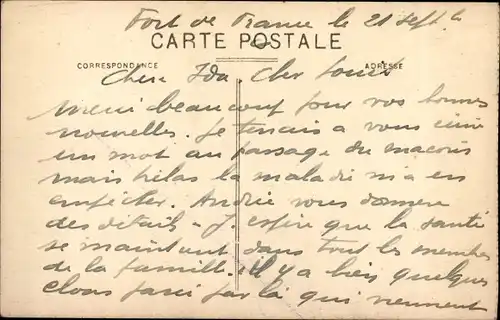 Fort de France le 21 sept
CARTE POSTALE
CORRESPONDANCE
ADRESSE
Chere Ida Cher
Merci beaucoup pour vos bonnes
nouvelles. Je tenais a vous
un mot au passage du macoris
mais helas la maladie m a en
empecher. Andrée vous donnera
des détails - J. espère que la santé
se maintient dans tout les membres
de la famille. il y a bien quelques
clous par ci par là qui viennent